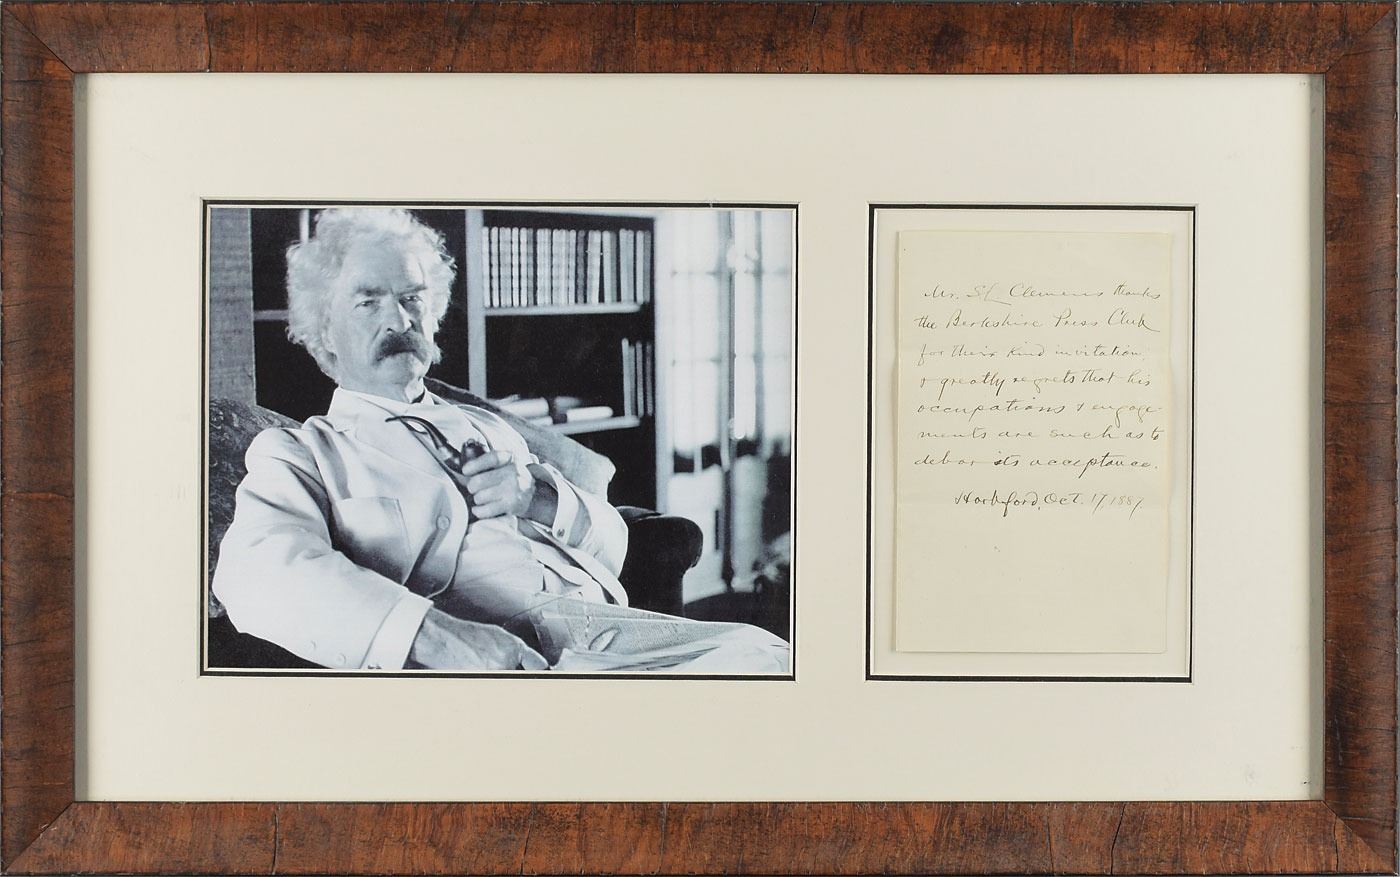 Mr. S L Clemens thanks
the Berkshire Press Club
for their kind invitation,
& greatly regrets that his
occupations & engage-
ments are such as to
debar its acceptance.
Hartford, Oct. 17, 1887.